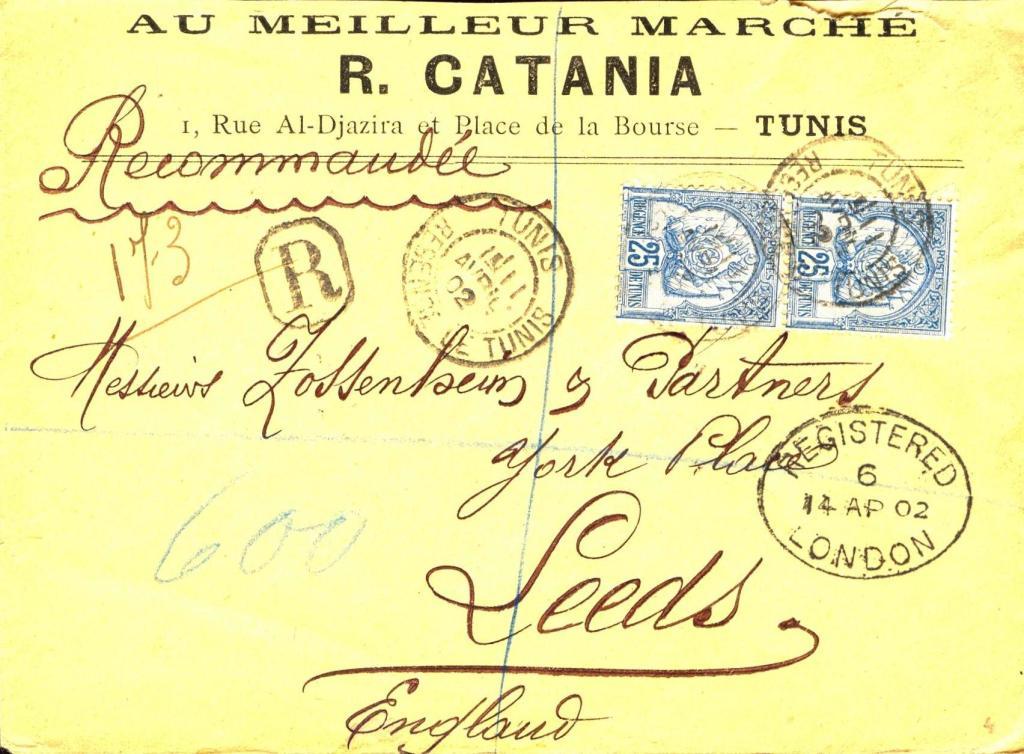 AU MEILLEUR MARCHÉ
R. CATANIA
1, Rue Al-Djazira et Place de la Bourse — TUNIS
Recommandée
173
R
TUNIS
11 AVRIL 02
REGENCE DE TUNIS
REGENCE
25
POSTES
DE TUNIS
REGENCE
25
POSTES
DE TUNIS
TUNIS
Messieurs Zossenheim & Partners
York Place
REGISTERED
6
14 AP 02
LONDON
600
Leeds
England
4